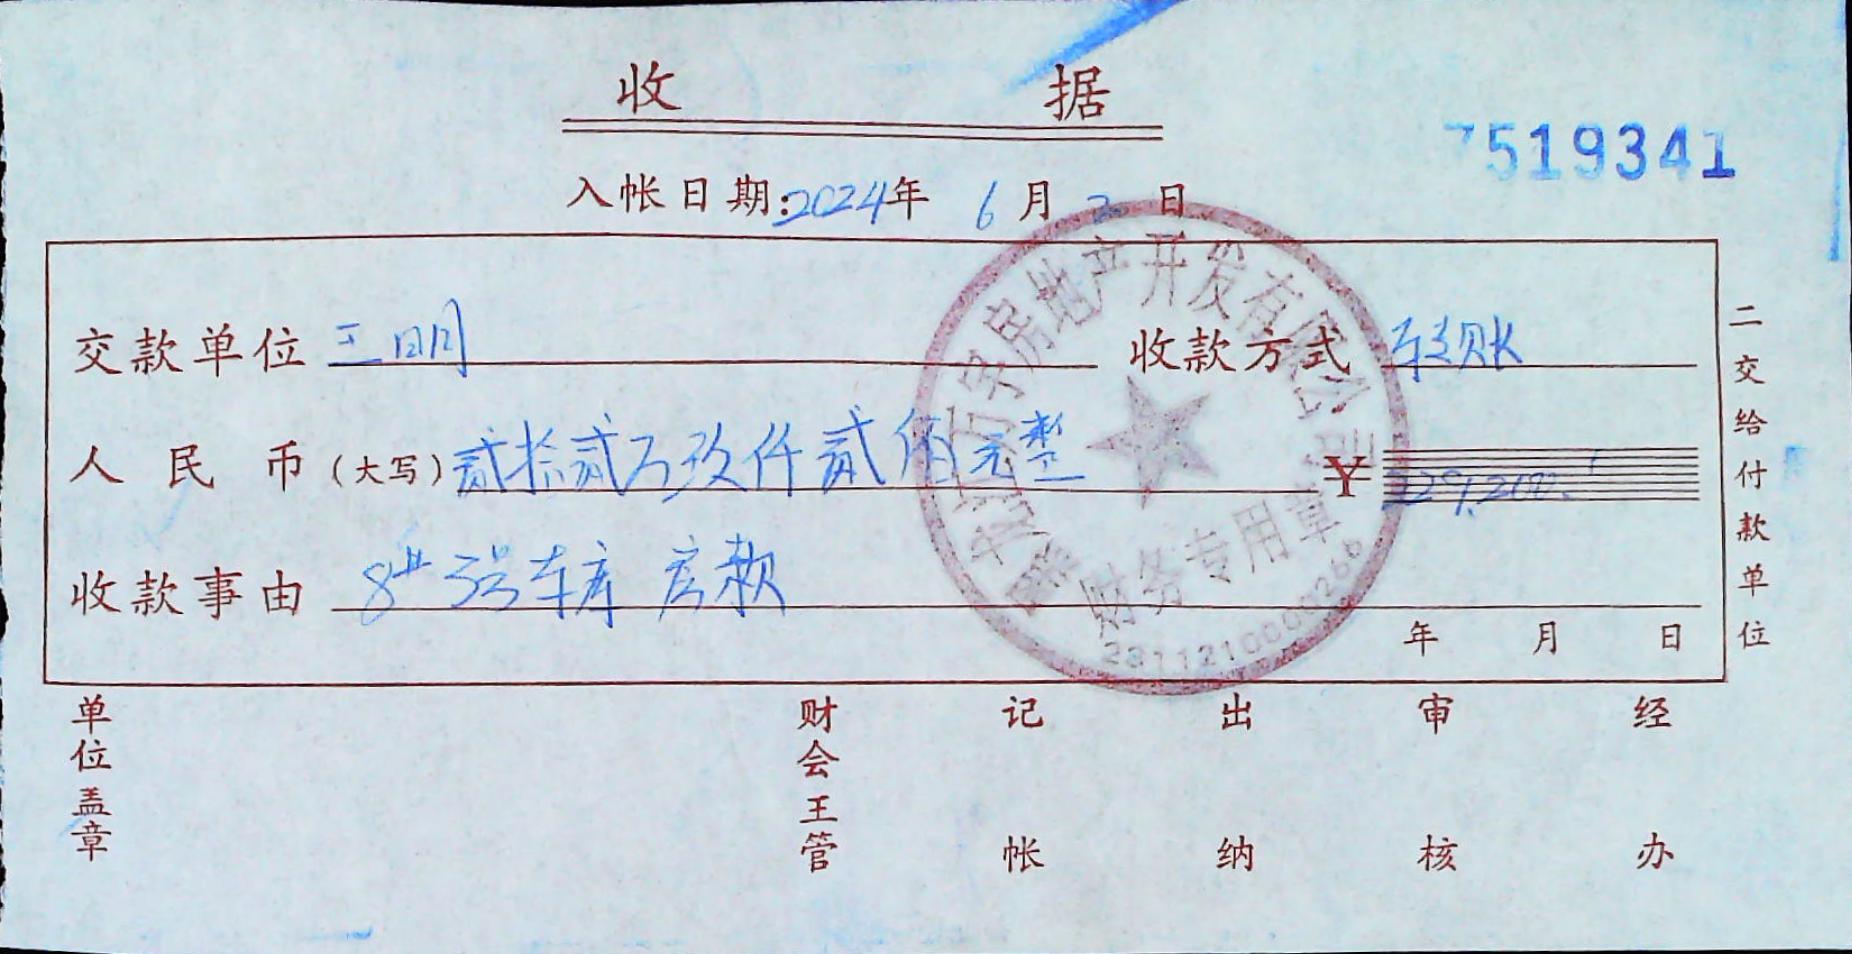 收 据
7519341
入帐日期:2024年 6 月 2 日
交款单位 王明 收款方式 转账
人民币(大写)贰拾贰万玖仟贰佰元整 ¥ 229,200.
收款事由 8# 3号车库 房款
年 月 日
二交给付款单位
房地产开发有限公司
财务专用章
2311210000266
单位盖章 财会主管 记帐 出纳 审核 经办